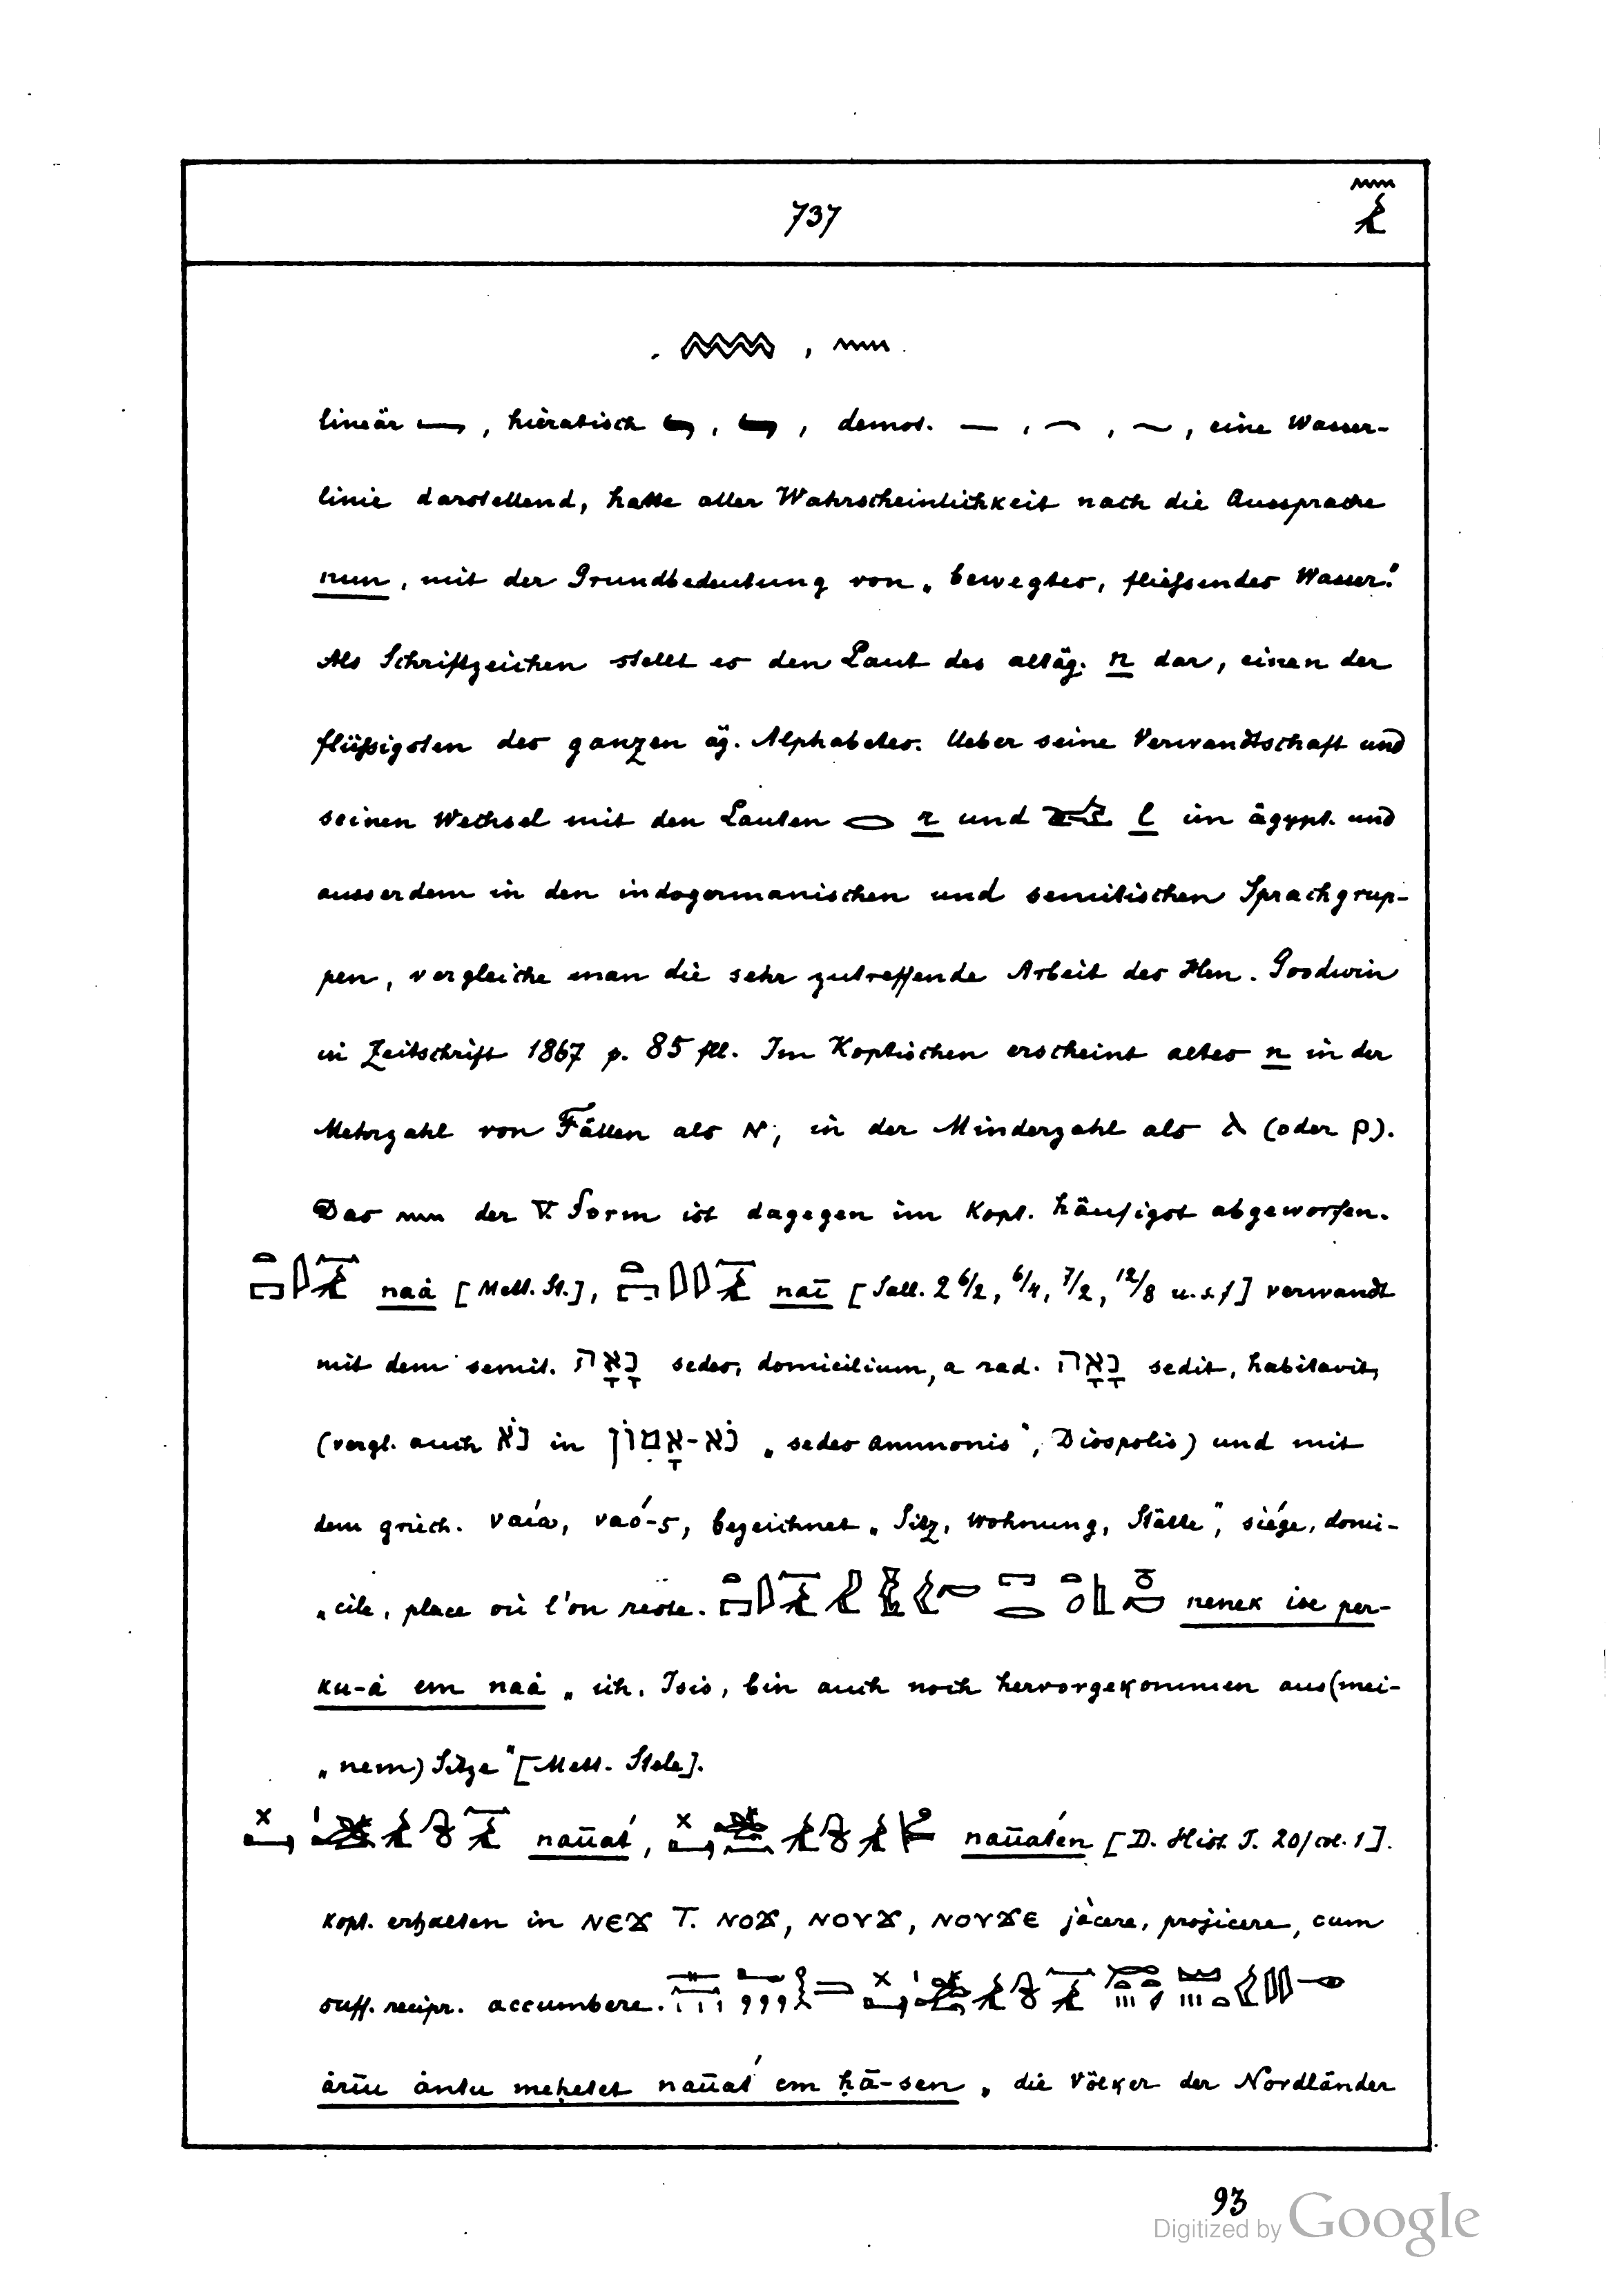 737
𓈖
,
linär , hieratisch , , demot. — , , , eine Wasser-
linie darstellend, hatte aller Wahrscheinlichkeit nach die Aussprache
nun, mit der Grundbedeutung von „bewegtes, fließendes Wasser."
Als Schriftzeichen stellt es den Laut des altäg. n dar, einen der
flüßigsten des ganzen äg. Alphabetes. Ueber seine Verwandtschaft und
seinen Wechsel mit den Lauten 𓂋 r und l im ägypt. und
ausserdem in den indogermanischen und semitischen Sprachgrup-
pen, vergleiche man die sehr zutreffende Arbeit des Hrn. Goodwin
in Zeitschrift 1867 p. 85 fll. Im Koptischen erscheint altes n in der
Mehrzahl von Fällen als ⲛ, in der Minderzahl als ⲗ (oder ⲣ).
Das 𓈖 der V. Form ist dagegen im Kopt. häufigst abgeworfen.
naȧ [Mett. St.], naī [Sall. 2 6/2, 6/4, 7/2, 12/8 u.s.f] verwandt
mit dem semit. נָאָה sedes, domicilium, a rad. נָאָה sedit, habitavit,
(vergl. auch נֹא in נֹא-אָמוֹן „sedes Ammonis", Diospolis) und mit
dem griech. ναίω, ναό-ς, bezeichnet „Sitz, Wohnung, Stätte", siége, domi-
„cile, place où l'on reste. nenek ise per-
ku-ȧ em naȧ „ich, Isis, bin auch noch hervorgekommen aus (mei-
„nem) Sitze" [Mett. Stele].
naūat́, naūat́en [D. Hist. I. 20/col. 1].
kopt. erhalten in ⲛⲉϫ T. ⲛⲟϫ, ⲛⲟⲩϫ, ⲛⲟⲩϫⲉ jàcere, projicere, cum
suff. recipr. accumbere.
ȧrīu ȧntu meḥetet naūat́ em ḥā-sen „die Völker der Nordländer
93
Digitized by Google